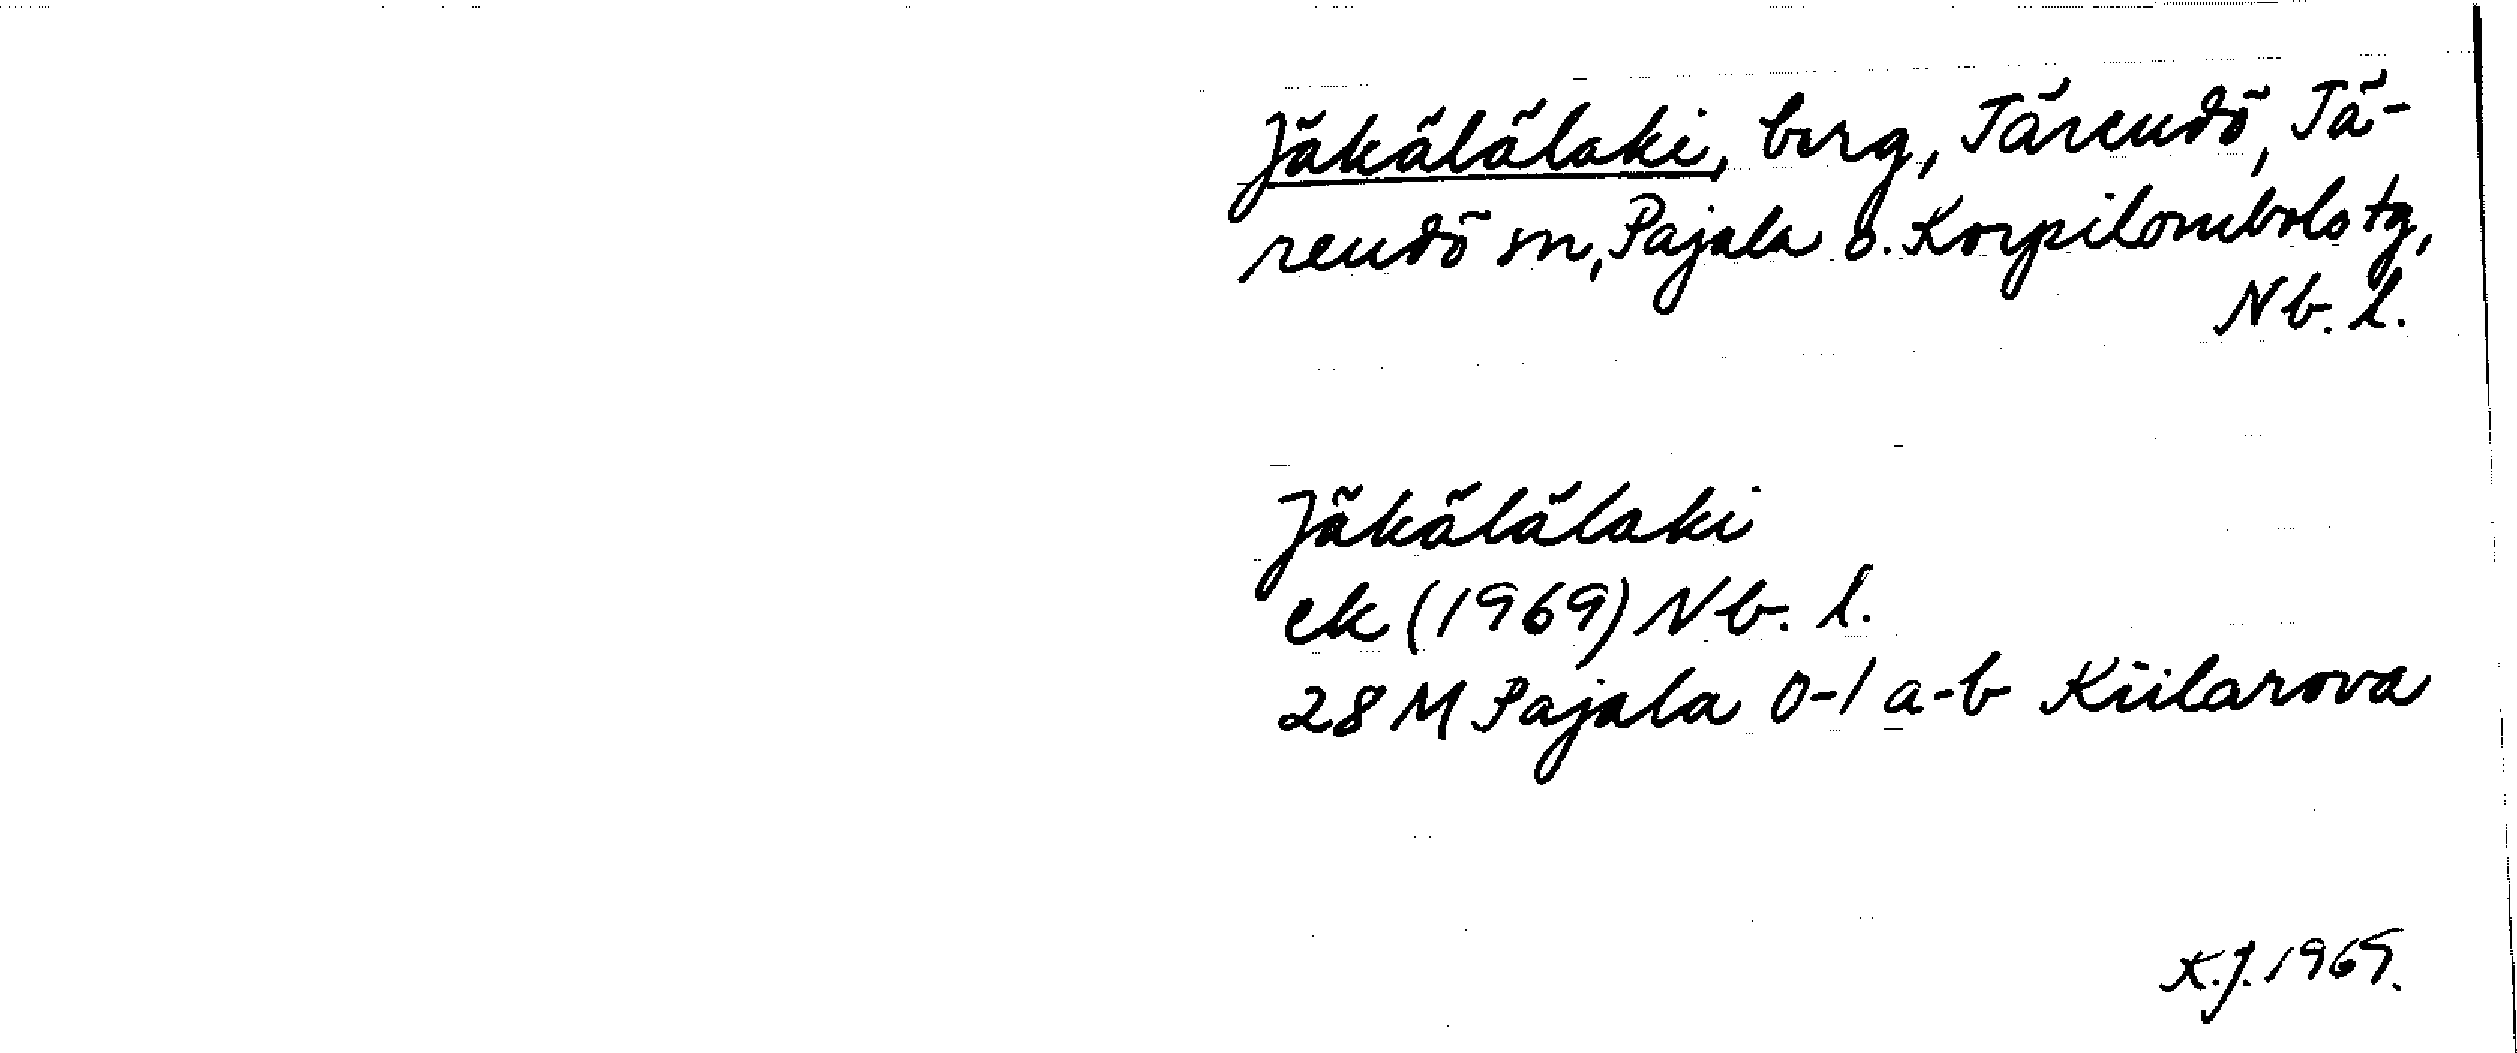 Jäkälälaki, berg, Tärendö, Tä-
rendö sn, Pajala o. Korpilombolo tg,
Nb. l.
Jäkälälaki
ek (1969) Nb. l.
28 M Pajala 0-1 a-b Kiilarova
K.J. 1969.